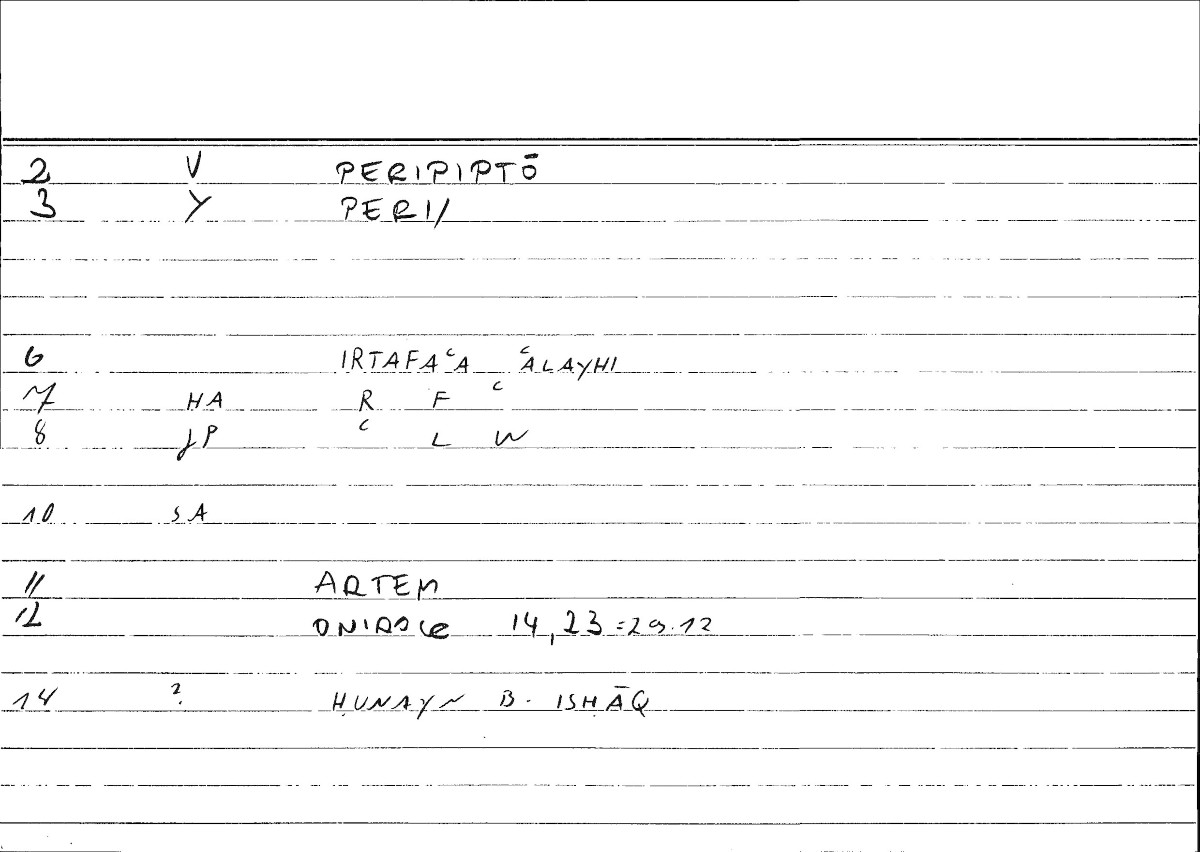 2 V PERIPIPTŌ
3 Y PERI/
6 IRTAFAʿA ʿALAYHI
7 HA R F ʿ
8 JP ʿ L W
10 SA
11 ARTEM
12 ONIROCR 14,23=29.12
14 ? ḤUNAYN B. ISḤĀQ